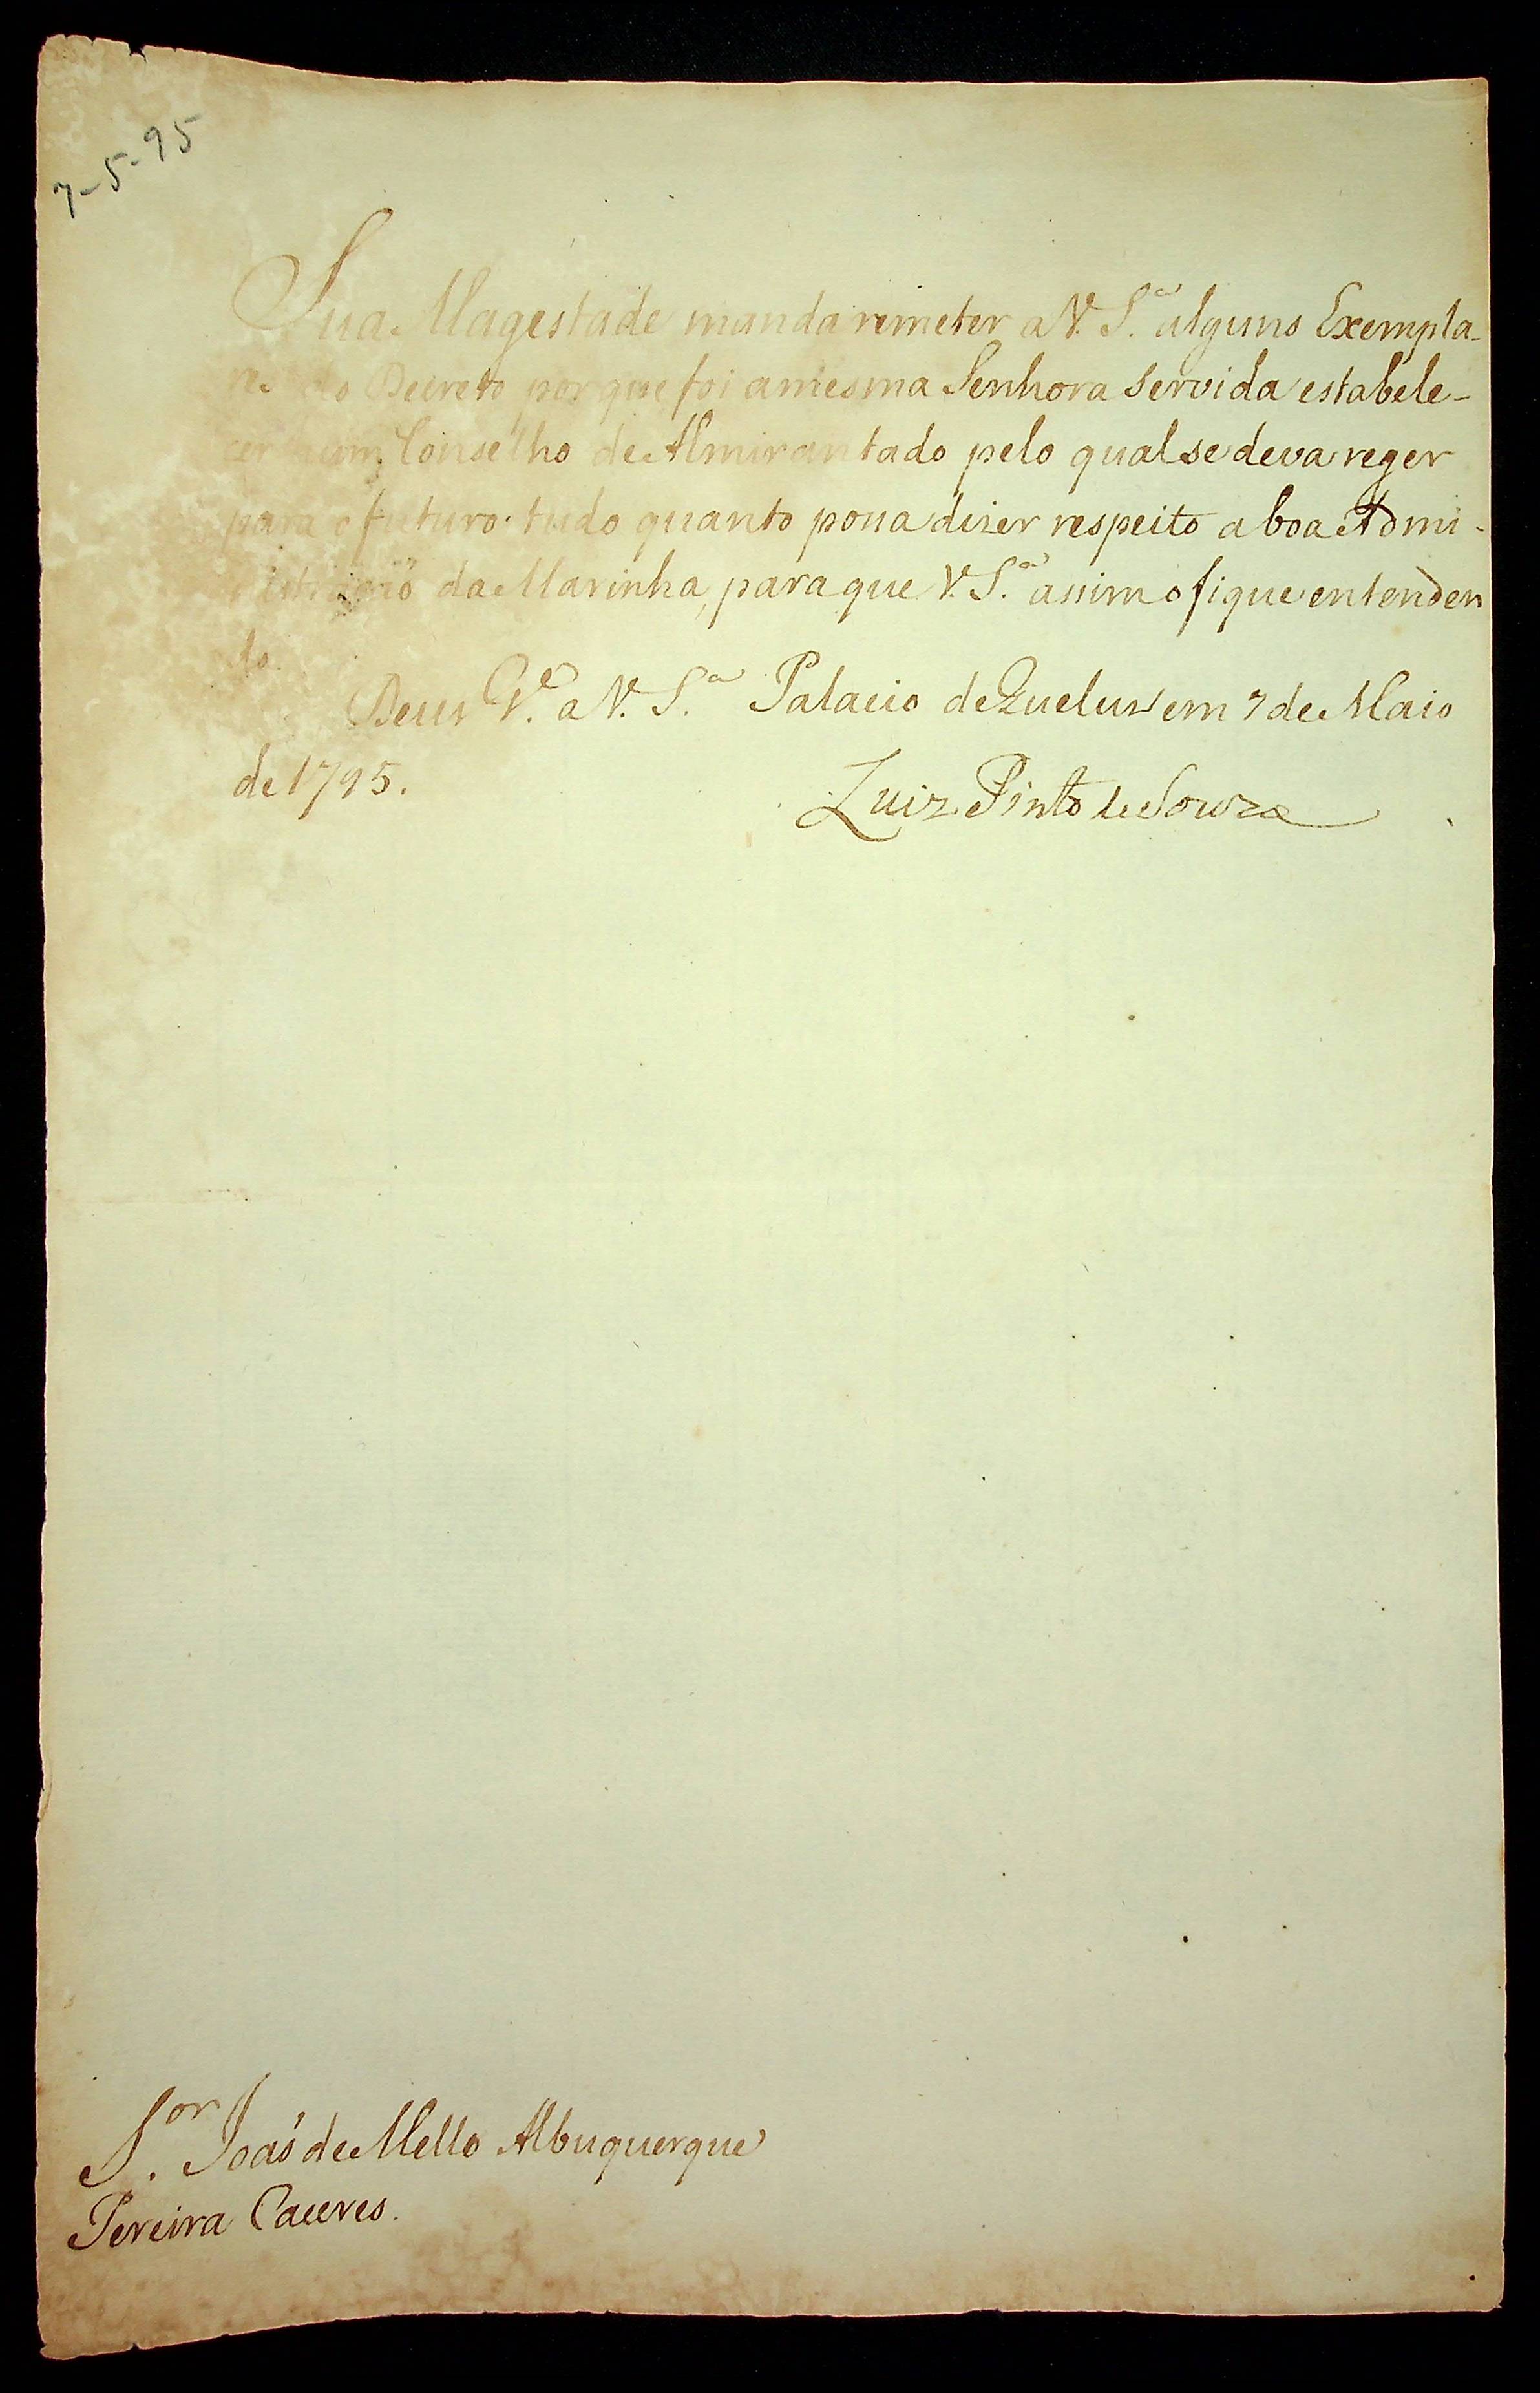 7-5-95
Sua Magestade manda remeter a V. S.ª alguns Exempla-
res do Decreto porque foi a mesma Senhora Servida estabele-
cer hum Conselho de Almirantado pelo qual se deva reger
para o futuro tudo quanto possa dizer respeito a boa Admi-
nistração da Marinha, para que V. S.ª assim o fique entenden
do.
Deus G.e a V. S.ª Palacio de Quelus em 7 de Maio
de 1795.
Luiz Pinto de Souza
S.or João de Mello Albuquerque
Pereira Caceres.